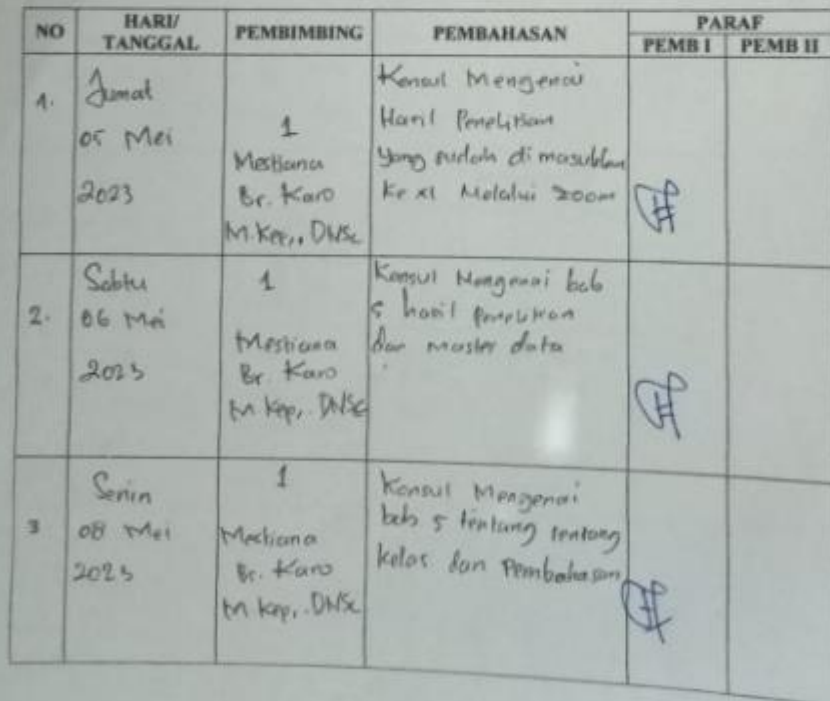 NO HARI/ TANGGAL PEMBIMBING PEMBAHASAN PARAF
PEMB I PEMB II
1.
Jumat
05 Mei
2023
1
Mestiana
Br. Karo
M.Kep,. DNSc
Konsul Mengenai
Hasil Penelitian
Yang sudah di masukkan
Ke xl Melalui zoom
2.
Sabtu
06 Mei
2023
1
Mestiana
Br. Karo
M Kep,. DNSc
Konsul Mengenai bab
5 hasil penelitian
dan master data
3
Senin
08 Mei
2023
1
Mestiana
Br. Karo
M Kep,. DNSc
Konsul Mengenai
bab 5 tentang tentang
kelas dan Pembahasan